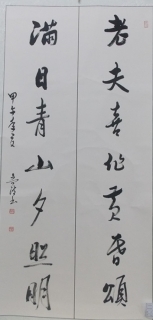 老夫喜作黄昏頌
滿目青山夕照明
甲午年